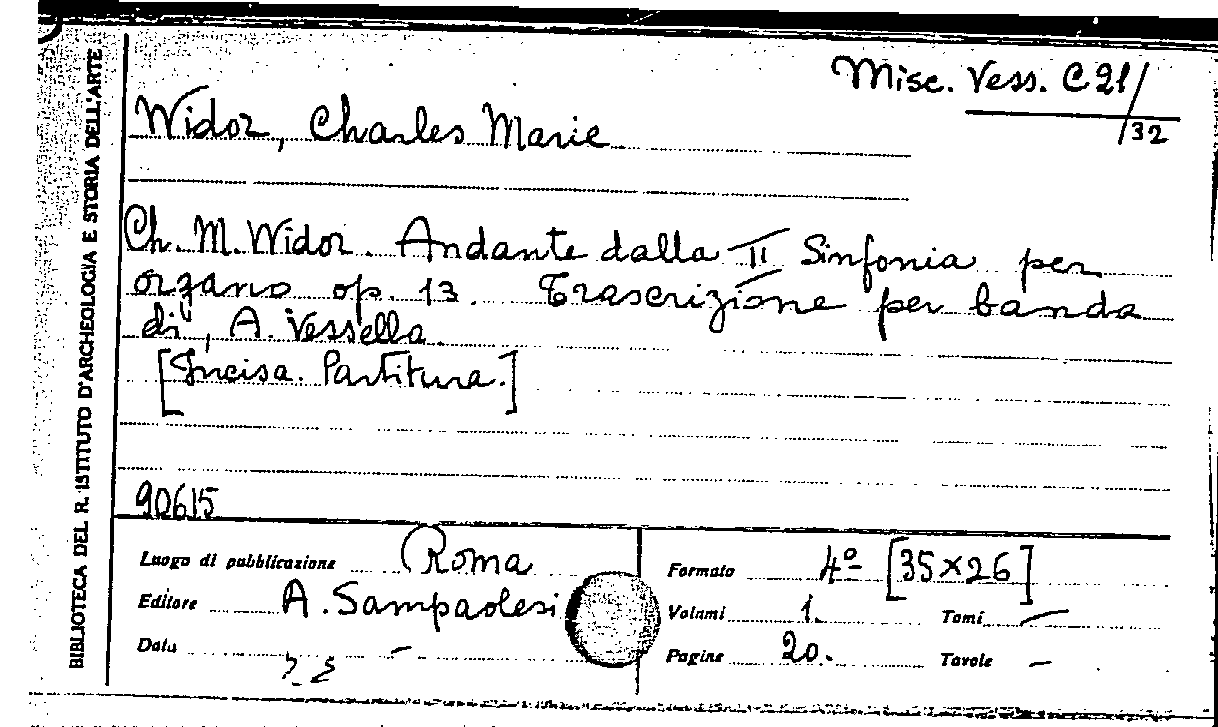 Misc. Vess. C 21/
/32
Widor, Charles Marie
Ch. M. Widor. Andante dalla II Sinfonia per
organo op. 13. Trascrizione per banda
di A. Vessella.
[Incisa. Partitura.]
90615
Luogo di pubblicazione Roma
Editore A. Sampaolesi
Data –
Formato 4º [35×26]
Volumi 1. Tomi —
Pagine 20. Tavole —
BIBLIOTECA DEL R. ISTITUTO D'ARCHEOLOGIA E STORIA DELL'ARTE